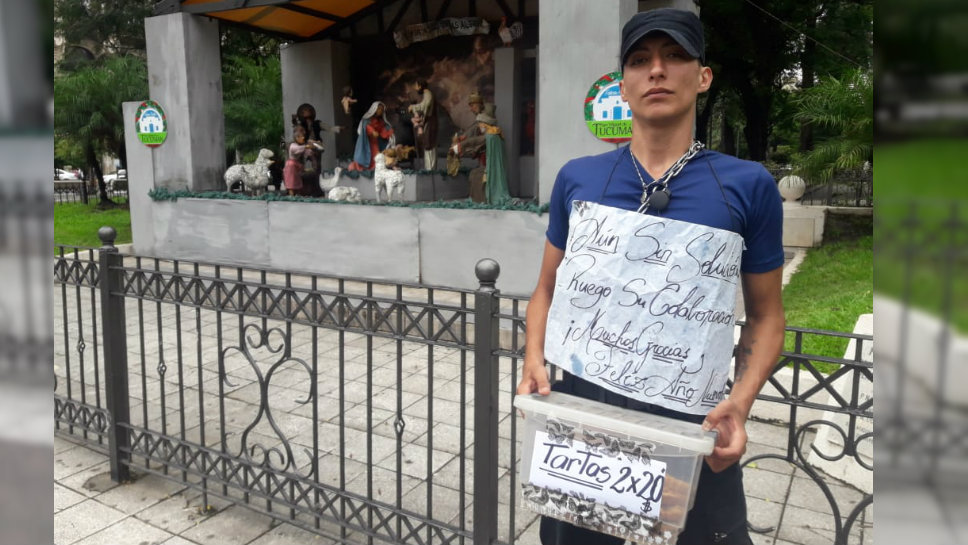 TUCUMAN
TUCUMAN
Aún Sin Solución
Ruego Su Colaboración
¡Muchas Gracias!
Feliz Año
TarTas 2x20
$